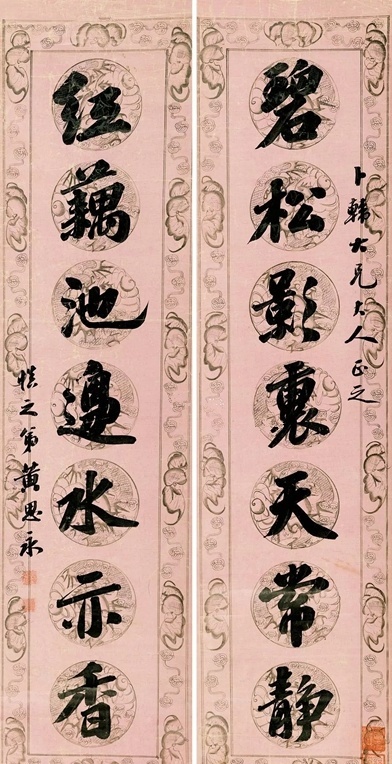 碧松影裏天常靜
卜韩大兄大人正之
紅藕池邊水亦香
慎之弟黄思永